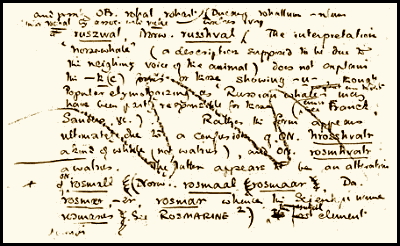 OE. whal Dansk whallum
ruszwal, Norw. russhval ( The interpretation
"horsewhale" ( a description supposed to be due to
the neighing voice of the animal) does not explain
the or those showing -u- though
Popular etymologizing as "Russian whale" may
have been partly responsible for these Franck
Rather the form appears
ultimately due to a confusion of ON. hrosshvalr
a kind of whale (not walrus), and ON. rosmhvalr
a walrus. The latter appears to be an alteration
of rosmall (Norw. rosmaal rosmaar), Da.
rosmer, -er rosmar whence the Scientific name
rosmarus See ROSMARINE 2), last element